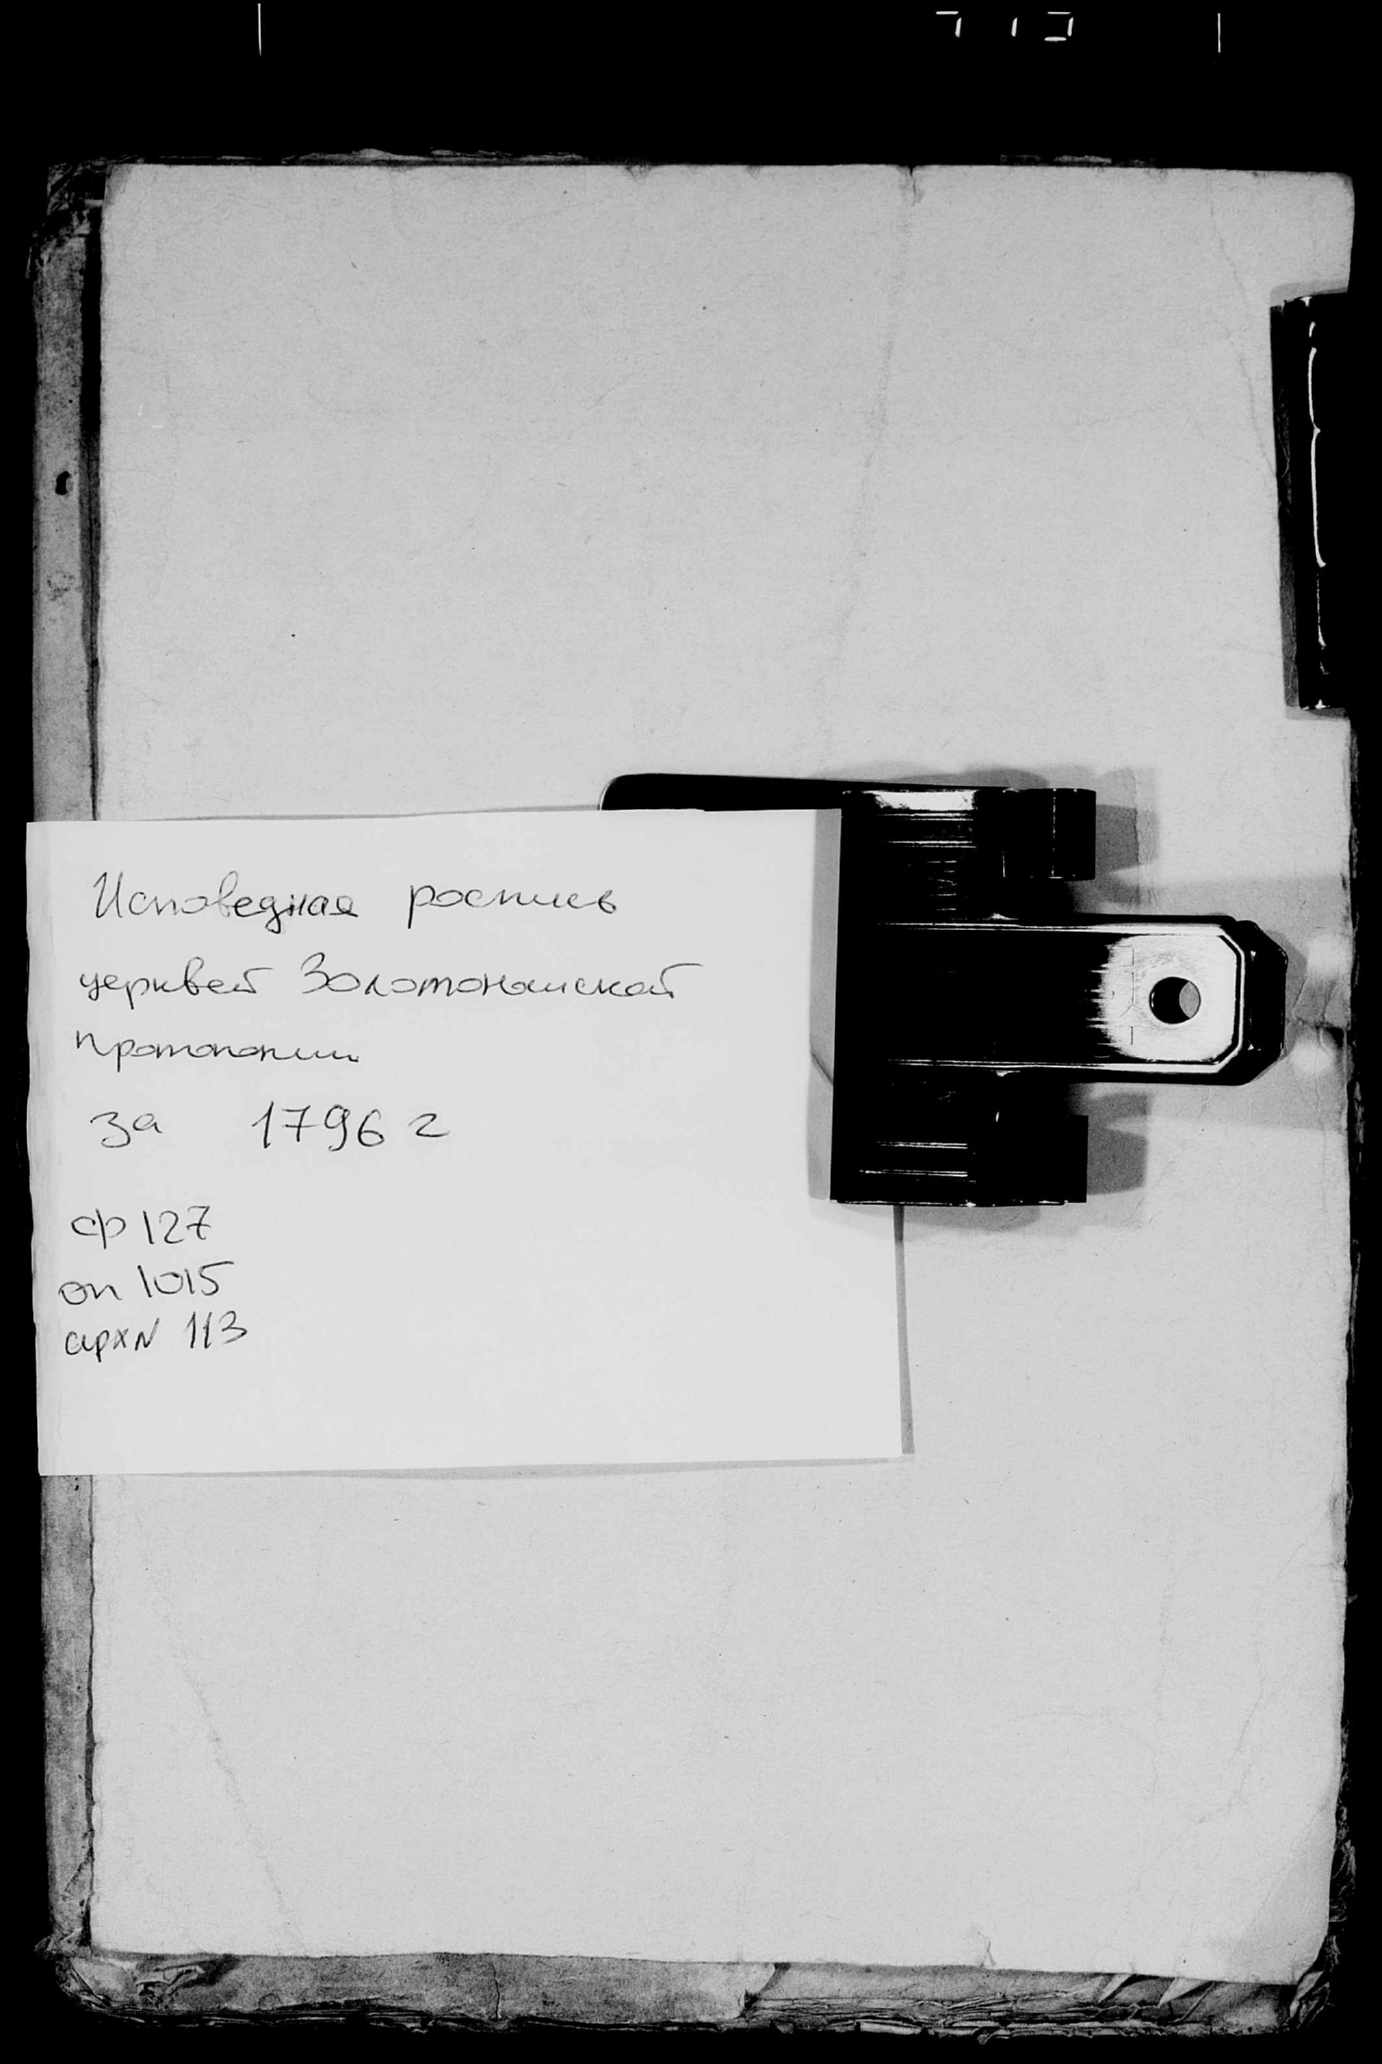 Исповедная роспись
церквей Золотоношской
протопопии
за 1796 г
ф 127
оп 1015
архN 113